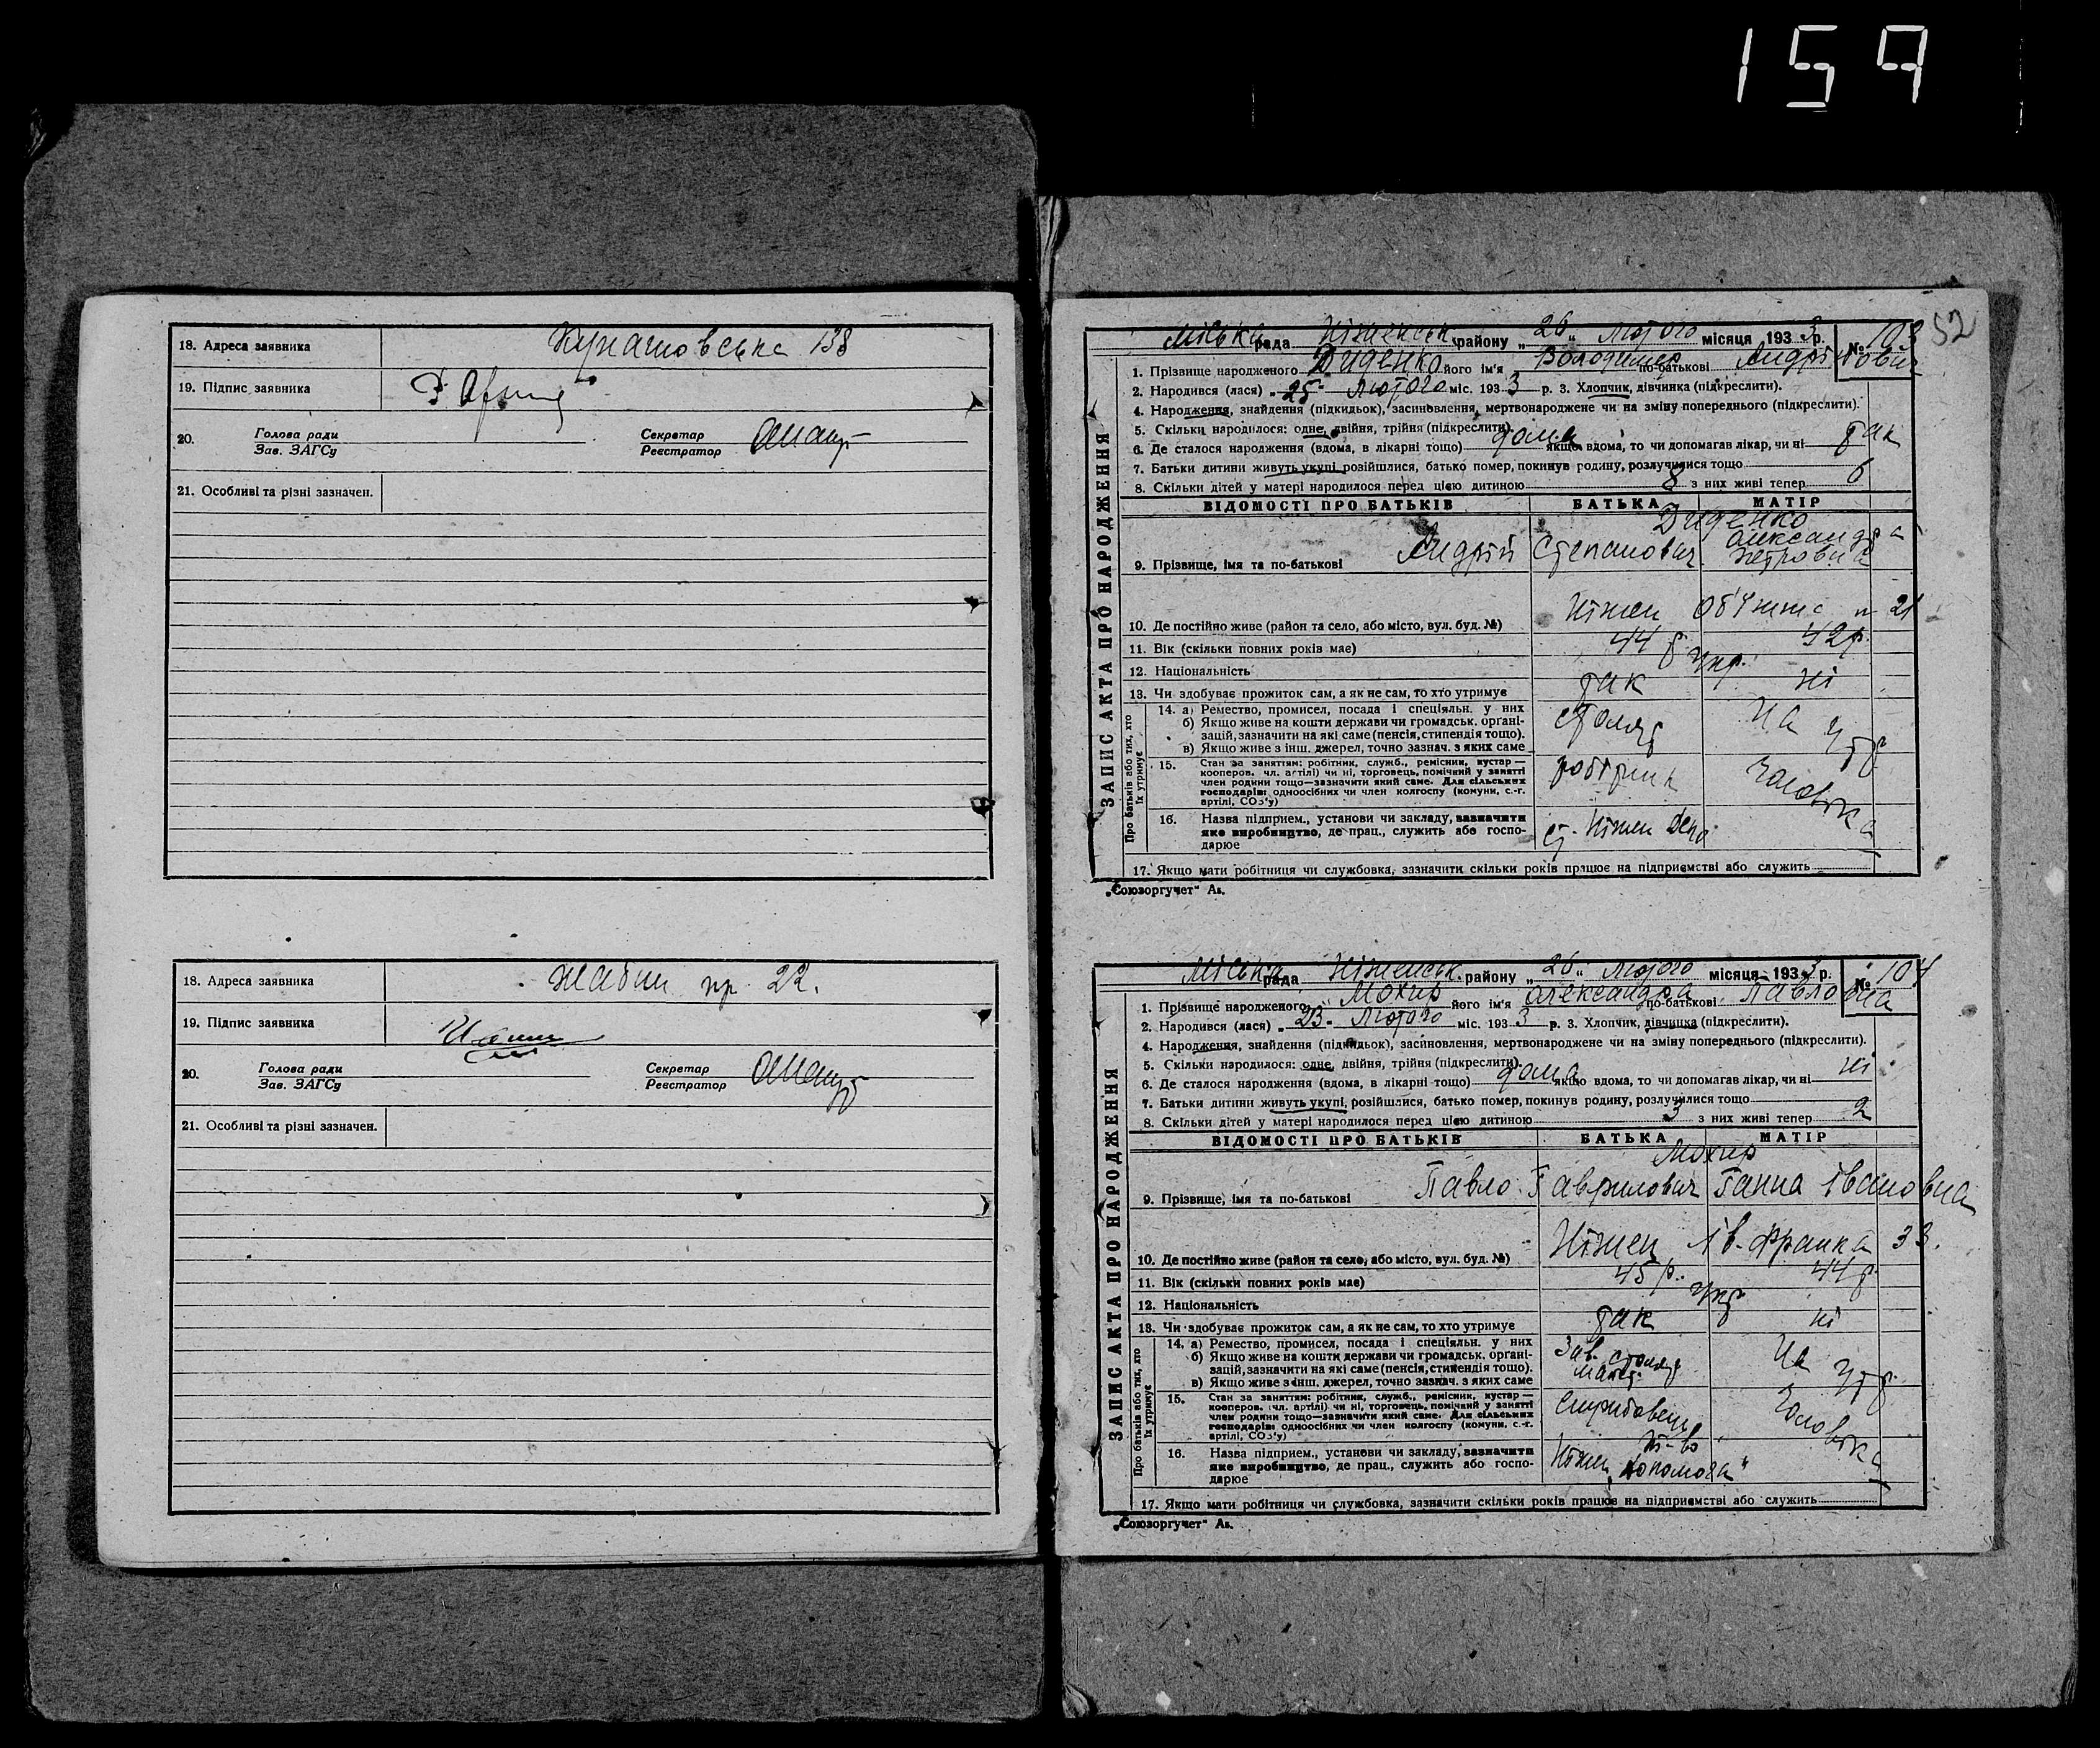 159
18. Адреса заявника Кунашовська 138
19. Підпис заявника
20. Голова ради Секретар
Зав. ЗАГСу Реєстратор
21. Особливі та різні зазначен.
18. Адреса заявника пр. 22.
19. Підпис заявника
20. Голова ради Секретар
Зав. ЗАГСу Реєстратор
21. Особливі та різні зазначен.
52
Міська рада Ніженськ. району „26“ лютого місяця 1933 р. № 103
1. Прізвище народженого Диденко його ім'я Володимер по-батькові Андрійович
2. Народився (лася) „25“ лютого міс. 1933 р. 3. Хлопчик, дівчинка (підкреслити).
4. Народження, знайдення (підкидьок), засиновлення, мертвонароджене чи на зміну попереднього (підкреслити).
5. Скільки народилося: одне, двійня, трійня (підкреслити).
6. Де сталося народження (вдома, в лікарні тощо) дома якщо вдома, то чи допомагав лікар, чи ні так
7. Батьки дитини живуть укупі, розійшлися, батько помер, покинув родину, розлучилися тощо
8. Скільки дітей у матері народилося перед цією дитиною 8 з них живі тепер 6
ЗАПИС АКТА ПРО НАРОДЖЕННЯ
ВІДОМОСТІ ПРО БАТЬКІВ БАТЬКА МАТІР
Диденко
9. Прізвище, імя та по-батькові Андрій Степанович Олександра Петровна
10. Де постійно живе (район та село, або місто, вул. буд. №) Ніжен 21
11. Вік (скільки повних років має) 44 р. 42 р.
12. Національність Укр.
13. Чи здобуває прожиток сам, а як не сам, то хто утримує так ні
Про батьків або тих, хто їх утримує
14. а) Ремество, промисел, посада і спеціяльн. у них столяр На утр.
б) Якщо живе на кошти держави чи громадськ. органі-
зацій, зазначити на які саме (пенсія, стипендія тощо).
в) Якщо живе з інш. джерел, точно зазнач. з яких саме
15. Стан за заняттям: робітник, служб., ремісник, кустар — робітник чоловіка
кооперов. чл. артілі) чи ні, торговець, помічний у занятті
член родини тощо—зазначити який саме. Для сільських
господарів: одноосібних чи член колгоспу (комуни, с.-г.
артілі, СОЗ'у)
16. Назва підприєм., установи чи закладу, зазначити ст. Ніжен Депо
яке виробництво, де прац., служить або госпо-
дарює
17. Якщо мати робітниця чи службовка, зазначити скільки років працює на підприємстві або служить
„Союзоргучет“ Ав.
Міська рада Ніженськ. району „26“ лютого місяця 1933 р. № 104
1. Прізвище народженого Мохир його ім'я Олександра по-батькові Павловна
2. Народився (лася) „23“ лютого міс. 1933 р. 3. Хлопчик, дівчинка (підкреслити).
4. Народження, знайдення (підкидьок), засиновлення, мертвонароджене чи на зміну попереднього (підкреслити).
5. Скільки народилося: одне, двійня, трійня (підкреслити).
6. Де сталося народження (вдома, в лікарні тощо) дома якщо вдома, то чи допомагав лікар, чи ні ні
7. Батьки дитини живуть укупі, розійшлися, батько помер, покинув родину, розлучилися тощо
8. Скільки дітей у матері народилося перед цією дитиною 3 з них живі тепер 2
ЗАПИС АКТА ПРО НАРОДЖЕННЯ
ВІДОМОСТІ ПРО БАТЬКІВ БАТЬКА МАТІР
Мохир
9. Прізвище, імя та по-батькові Павло Гаврилович Ганна Івановна
10. Де постійно живе (район та село, або місто, вул. буд. №) Ніжен Ів. Франка 33.
11. Вік (скільки повних років має) 45 р. 44 р.
12. Національність Укр
13. Чи здобуває прожиток сам, а як не сам, то хто утримує так ні
Про батьків або тих, хто їх утримує
14. а) Ремество, промисел, посада і спеціяльн. у них Зав. столяр майст. На утр.
б) Якщо живе на кошти держави чи громадськ. органі-
зацій, зазначити на які саме (пенсія, стипендія тощо).
в) Якщо живе з інш. джерел, точно зазнач. з яких саме
15. Стан за заняттям: робітник, служб., ремісник, кустар — Службовець чоловіка
кооперов. (чл. артілі) чи ні, торговець, помічний у занятті
член родини тощо—зазначити який саме. Для сільських
господарів: одноосібних чи член колгоспу (комуни, с.-г.
артілі, СОЗ'у)
16. Назва підприєм., установи чи закладу, зазначити Ніжен т-во „Допомога“
яке виробництво, де прац., служить або госпо-
дарює
17. Якщо мати робітниця чи службовка, зазначити скільки років працює на підприємстві або служить
„Союзоргучет“ Ав.